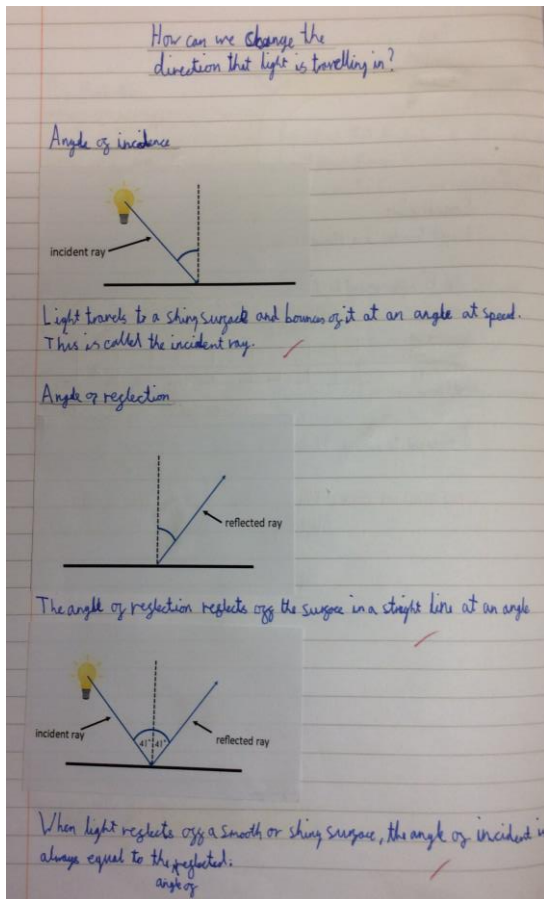 How can we change the
direction that light is travelling in?
Angle of incidence
incident ray
Light travels to a shiny surface and bounces of it at an angle at speed.
This is called the incident ray.
Angle of reflection
reflected ray
The angle of reflection reflects off the surface in a stright line at an angle
incident ray
41° 41°
reflected ray
When light reflects off a smooth or shiny surface, the angle of incident is
always equal to the reflected.
angle of